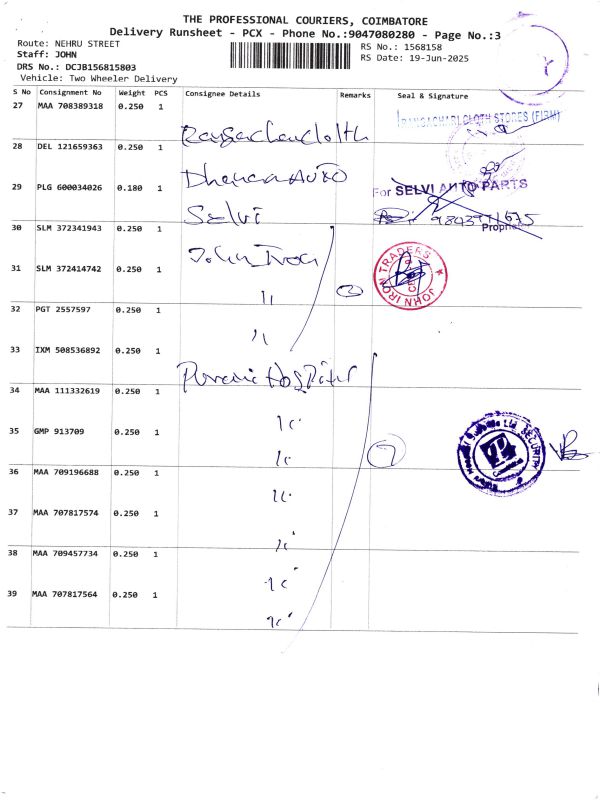 THE PROFESSIONAL COURIERS, COIMBATORE
Delivery Runsheet - PCX - Phone No.:9047080280 - Page No.:3
Route: NEHRU STREET
RS No.: 1568158
Staff: JOHN
RS Date: 19-Jun-2025
DRS No.: DCJB156815803
Vehicle: Two Wheeler Delivery
S No Consignment No Weight PCS Consignee Details Remarks Seal & Signature
27 MAA 708389318 0.250 1
RANGACHARI CLOTH STORES (FIRM)
28 DEL 121659363 0.250 1
29 PLG 600034026 0.180 1 Dhanam AUTO
For SELVI AUTO PARTS
Selvi
Proprietor
30 SLM 372341943 0.250 1 John Iron
31 SLM 372414742 0.250 1 "
2
JOHN IRON TRADERS
32 PGT 2557597 0.250 1 "
33 IXM 508536892 0.250 1
Hospital
34 MAA 111332619 0.250 1 "
35 GMP 913709 0.250 1 "
7
SECURITY
36 MAA 709196688 0.250 1 "
37 MAA 707817574 0.250 1 "
38 MAA 709457734 0.250 1 "
39 MAA 707817564 0.250 1 "